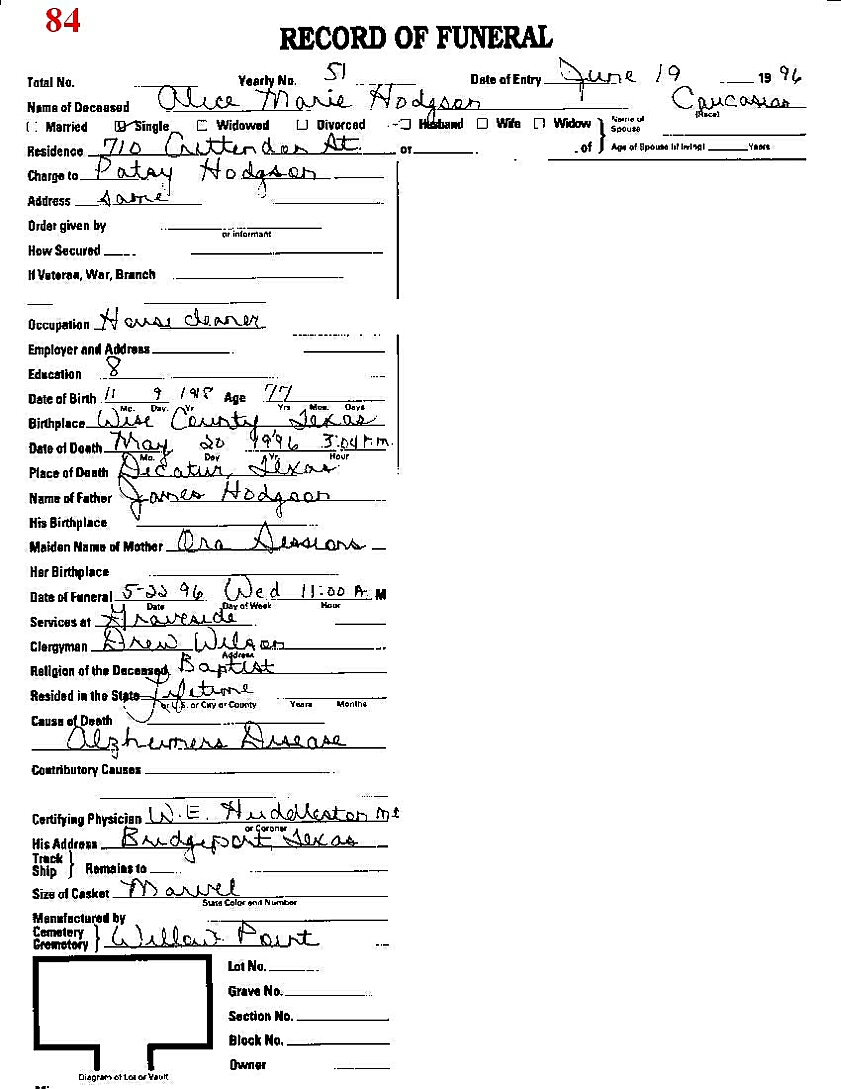 84
RECORD OF FUNERAL
Total No. Yearly No. 51 Date of Entry June 19 19 96
Name of Deceased Alice Marie Hodgson Caucasian
(Race)
Married Single Widowed Divorced Husband Wife Widow } Name of Spouse
Residence 710 Crittendon St. or of } Age of Spouse (if living) Years
Charge to Patsy Hodgson
Address same
Order given by
or informant
How Secured
If Veteran, War, Branch
Occupation House cleaner
Employer and Address
Education 8
Date of Birth 11 9 1918 Age 77
Mo. Day. Yr Yrs Mos. Days
Birthplace Wise County Texas
Date of Death May 20 1996 3:04 P.M.
Mo. Day Yr. Hour
Place of Death Decatur, Texas
Name of Father James Hodgson
His Birthplace
Maiden Name of Mother Ora Sessions
Her Birthplace
Date of Funeral 5-22 96 Wed 11:00 A. M
Date Day of Week Hour
Services at Graveside
Clergyman Drew Wilson
Address
Religion of the Deceased Baptist
Resided in the State Lifetime
or U.S. or City or County Years Months
Cause of Death
Alzheimers Disease
Contributory Causes
Certifying Physician W.E. Huddleston MD
or Coroner
His Address Bridgeport, Texas
Track
Ship } Remains to
Size of Casket Marvel
State Color and Number
Manufactured by
Cemetery
Crematory } Willow Point
Lot No.
Grave No.
Section No.
Block No.
Owner
Diagram of Lot or Vault